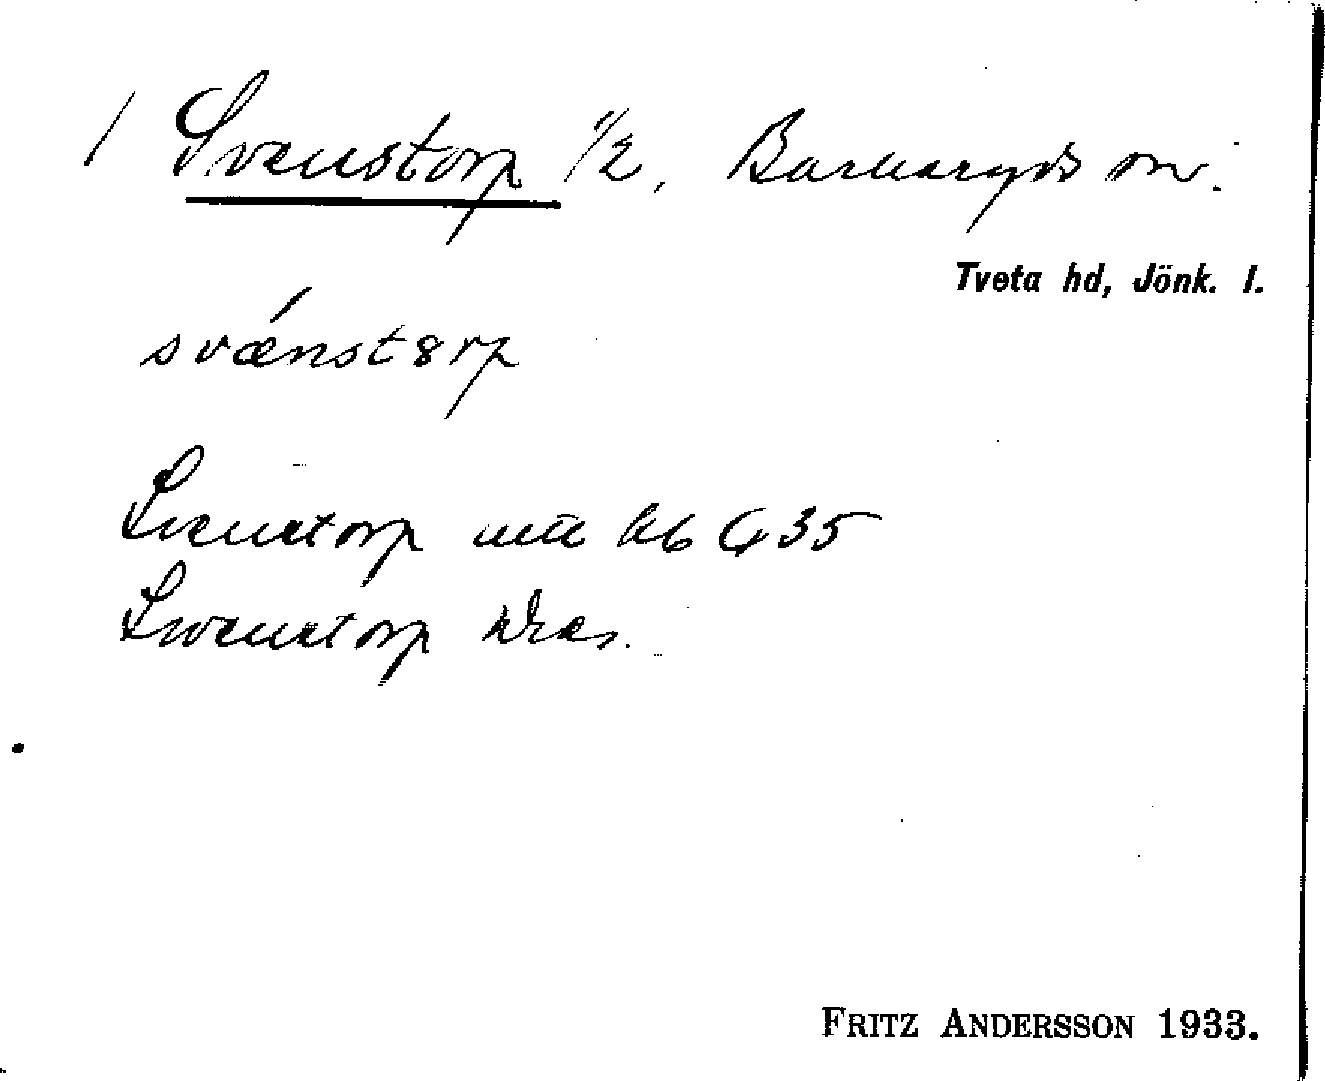 / Svenstorp 1/2, Barkeryds sn.
Tveta hd, Jönk. l.
svǽnst8rp
Svenstorp Gb 35
Swenstorp
FRITZ ANDERSSON 1933.